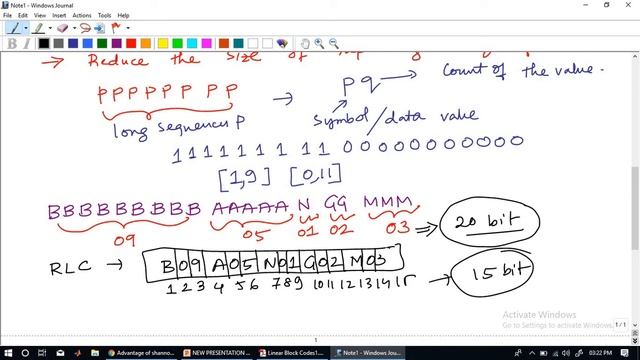 Note1 - Windows Journal
File Edit View Insert Actions Tools Help
→ Reduce the size of
PPPPPPPP → Pq → Count of the value.
long sequences P
Symbol/data value
1 1 1 1 1 1 1 1 1 0 0 0 0 0 0 0 0 0 0 0
[1,9] [0,11]
BBBBBBBBB AAAAA N GG MMM
09 05 01 02 03 ⇒ 20 bit
RLC → B09A05N01G02M03
1 2 3 4 5 6 7 8 9 10 11 12 13 14 15 → 15 bit
Activate Windows
Go to Settings to activate Windows.
1 1 / 1
Advantage of shanno... NEW PRESENTATION ... Linear Block Codes1... Note1 - Windows Jour... 03:22 PM